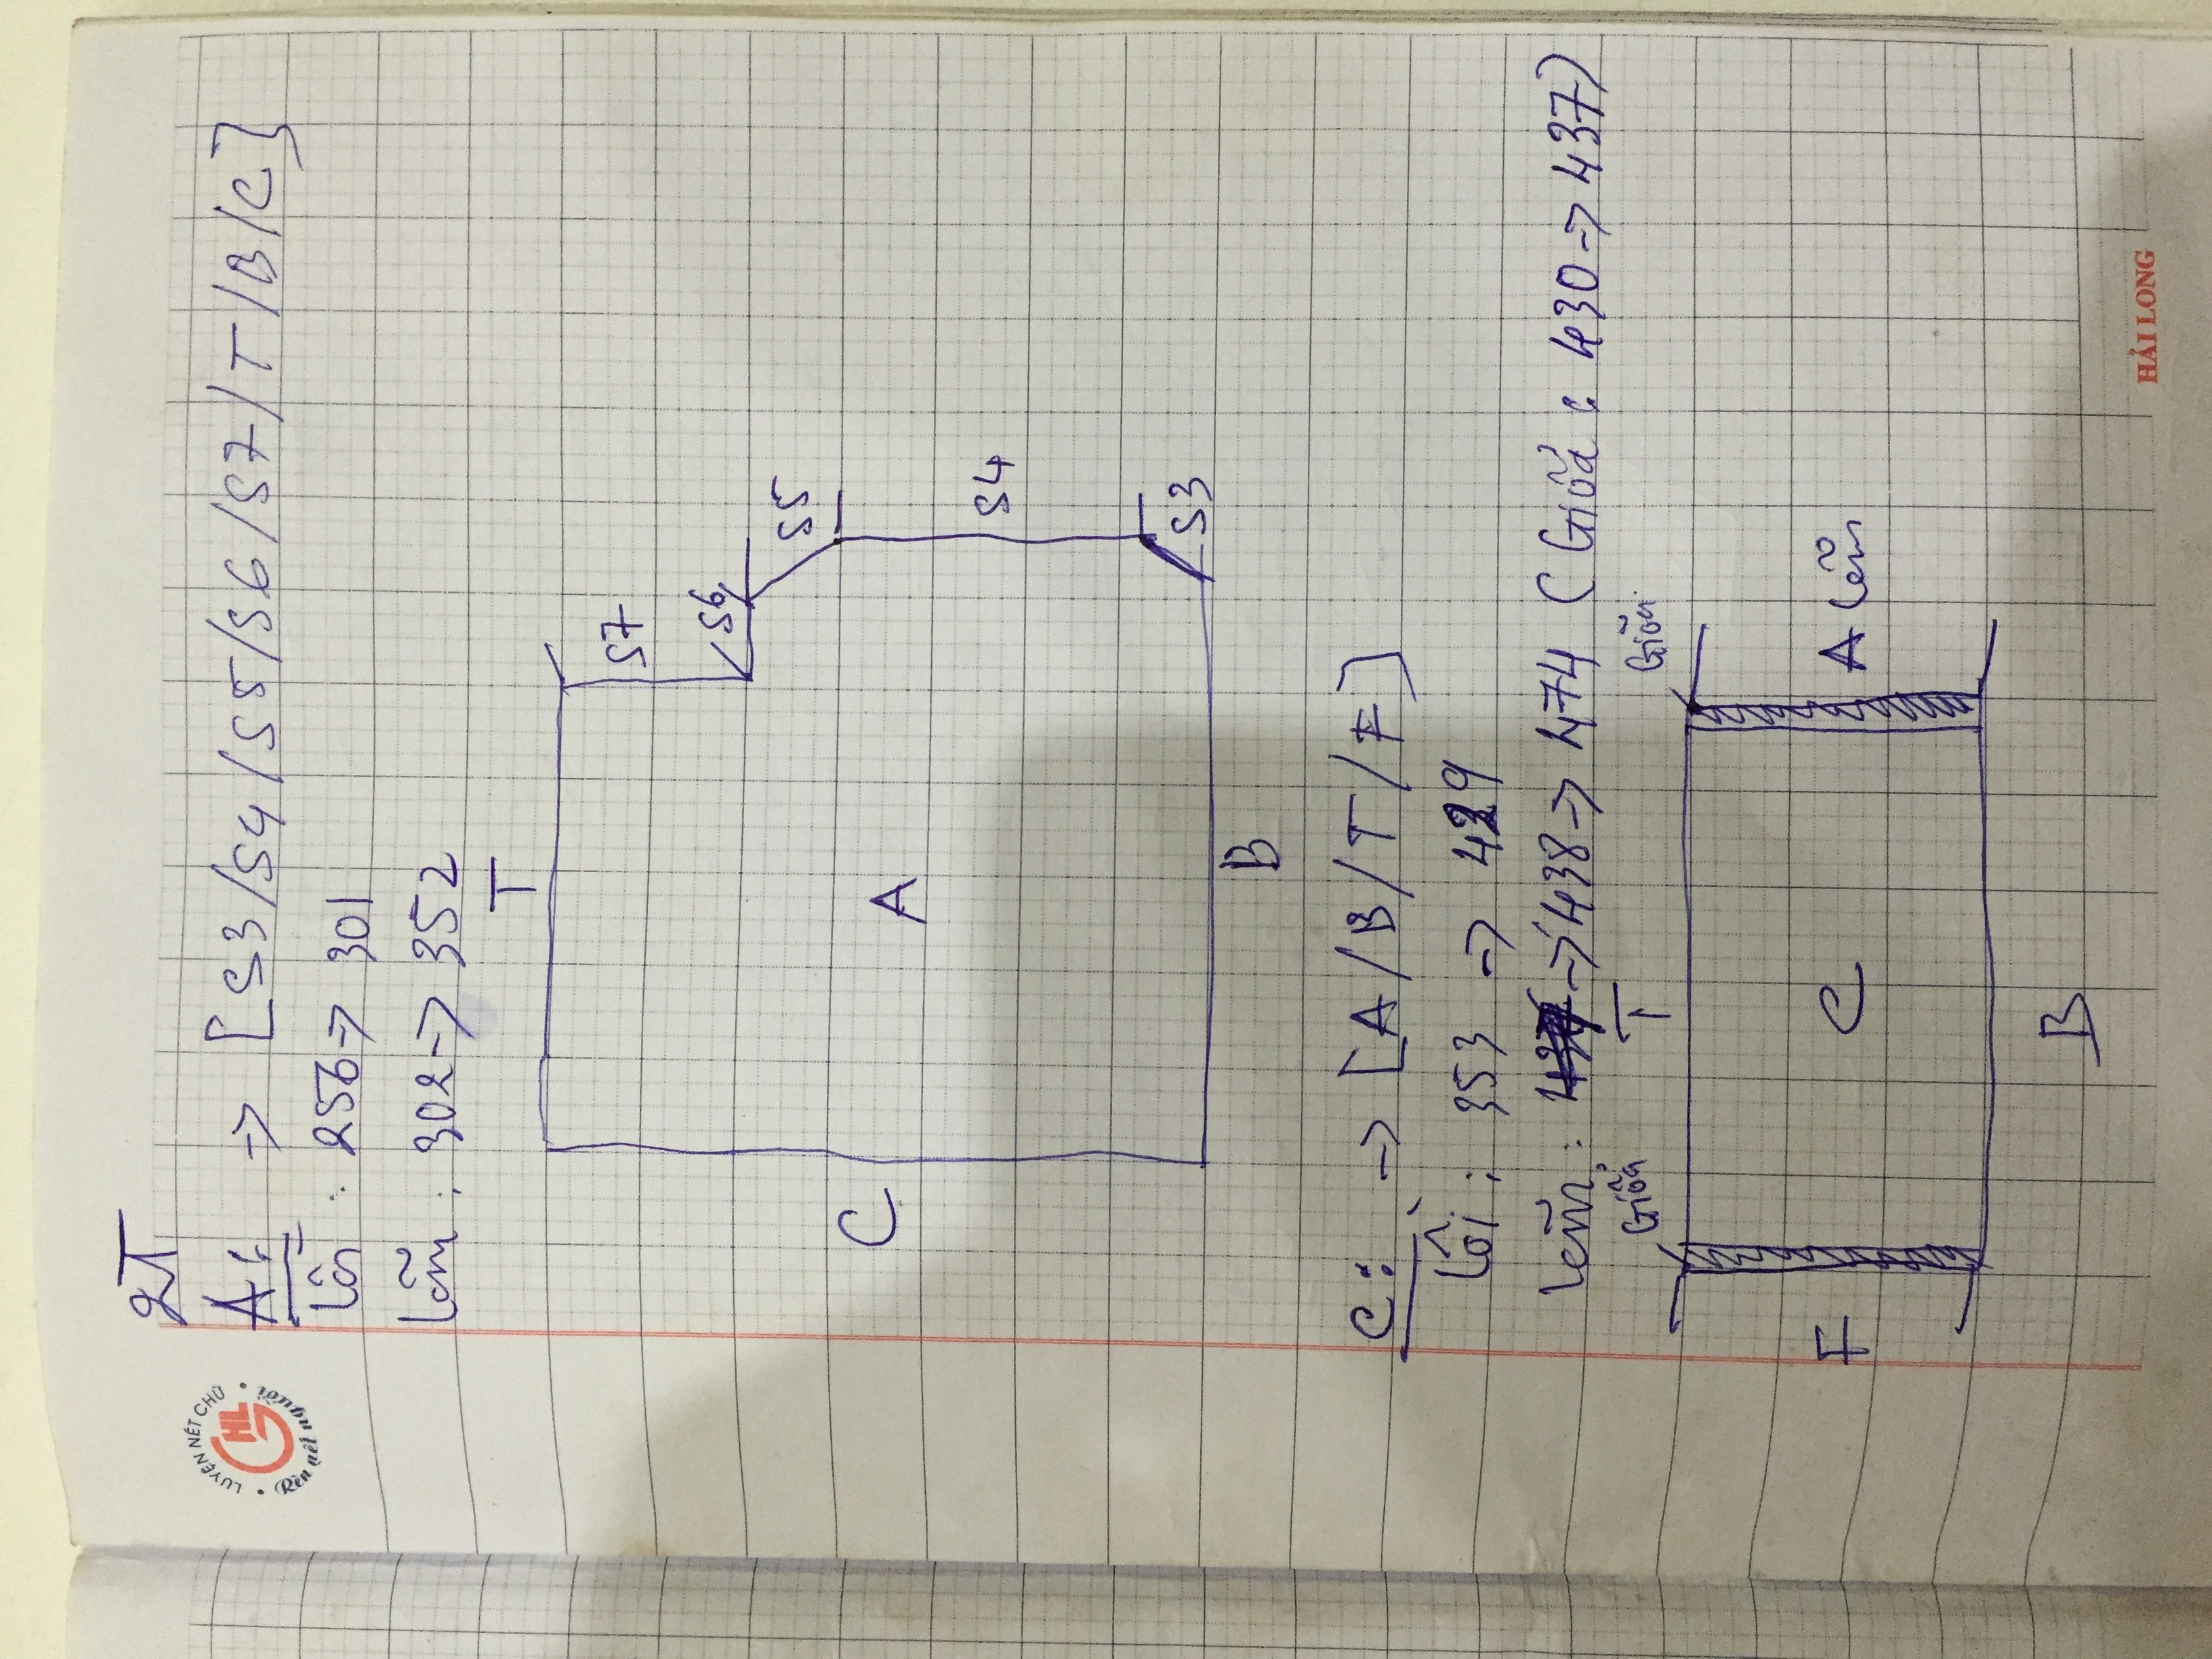 2T
LUYỆN NÉT CHỮ
HL
Rèn nết người
A: -> [S3/S4/S5/S6/S7/T/B/C]
lồi : 256 -> 301
lõm : 302 -> 352
T
S7
S6
S5
C
A
S4
S3
B
C: -> [A/B/T/F]
lồi : 353 -> 429
lõm : -> 438 -> 474 (Giữa : 430 -> 437)
Giữa T Giữa
F C A lõm
B
HẢI LONG